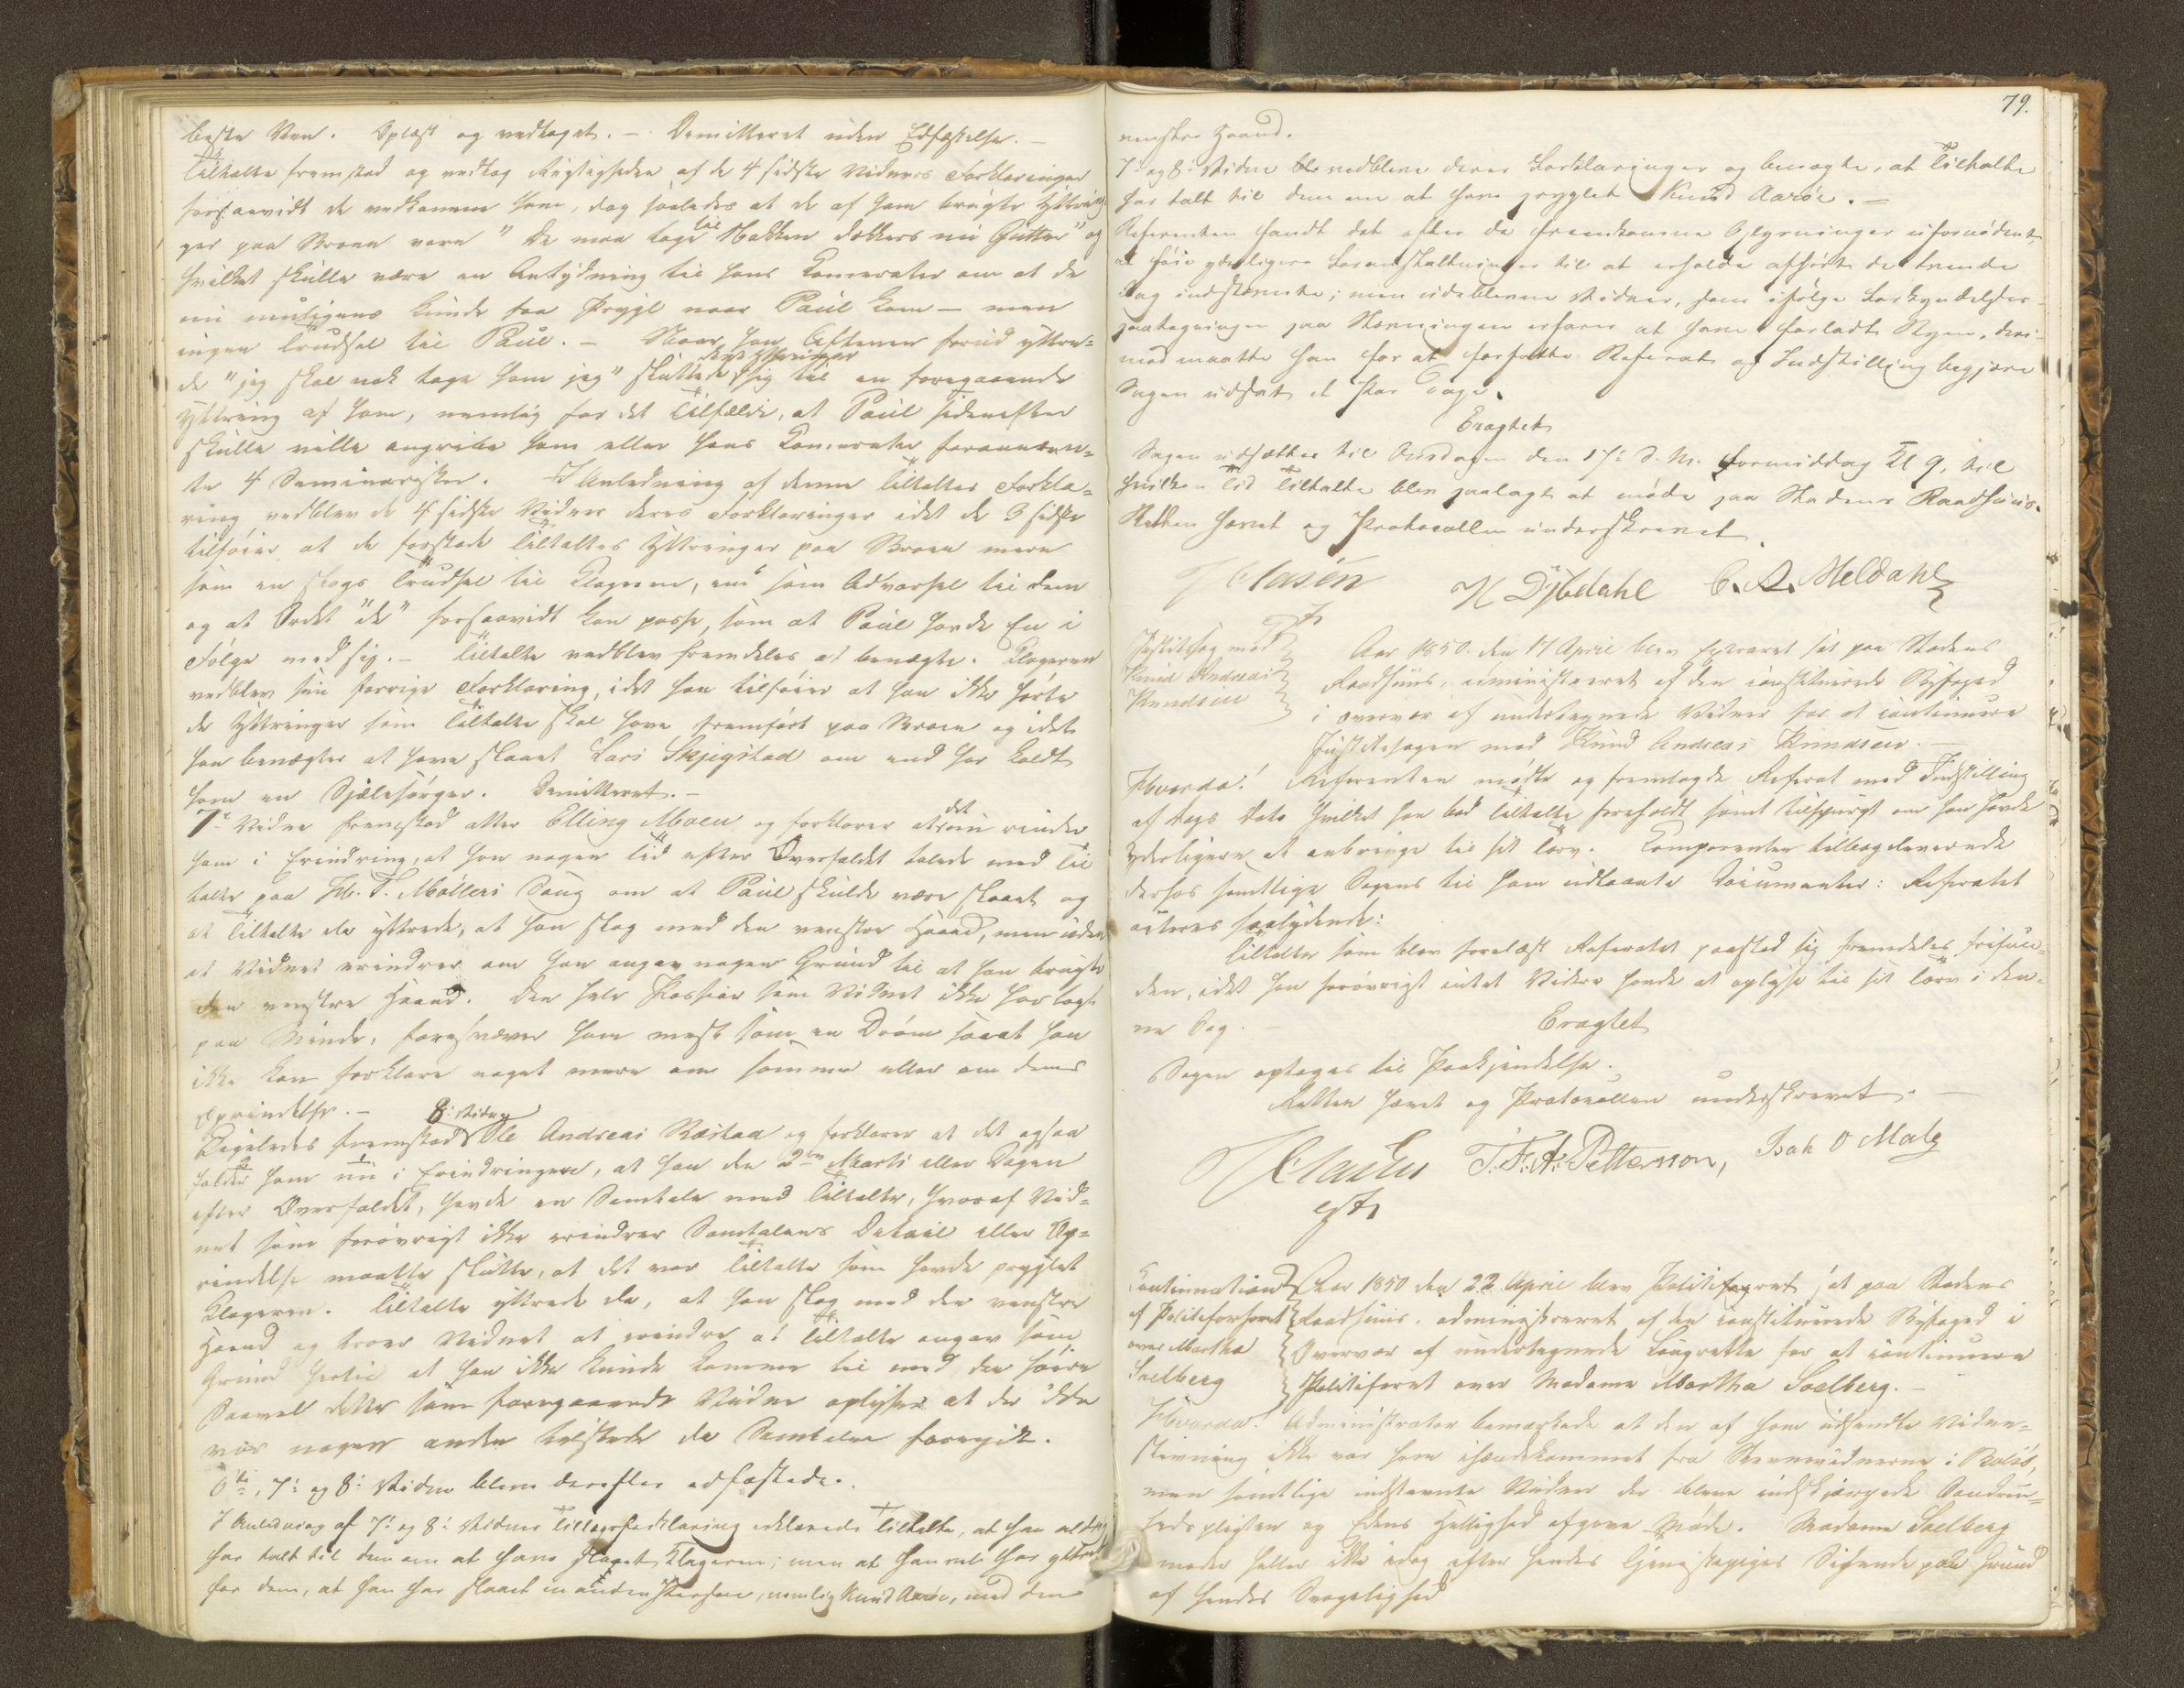 beste Ven. Oplæst og vedtaget. – Demitteret uden Edfæstelse. –
Tiltalte fremstod og vedtog Rigtigheden af de 4 sidste Vidners Forklaringer
forsaavidt de vedkomme ham, dog saaledes at de af ham brugte Yttrin-
ger paa Broen vare "De maa tage til Nakken dokkers nu Gutter" og
hvilket skulle være en Antydning til hans Kamerater om at de
nu muligens kunde faa Prygl naar Paul kom – men
ingen Trudsel til Paul. – Naar han Aftenen forud yttre-
de "jeg skal nok tage ham jeg" sluttede denne Yttring sig til en foregaaende
Yttring af ham, nemlig for det Tilfælde, at Paul sidenefter
skulle ville angribe ham eller hans Kamerater forannævn-
te 4 Seminarister. I Anledning af denne Tiltaltes Forkla-
ring vedblev de 4 sidste Vidner deres Forklaringer idet de 3 sidste
tilføier at de forstode Tiltaltes Yttringer paa Broen mere
som en Slags Trudsel til Klageren, end som Advarsel til dem
og at Ordet "de" forsaavidt kan passe, som at Paul havde En i
Følge med sig. – Tiltalte vedblev fremdeles at benægte. Klageren
vedblev sin forrige Forklaring, idet han tilføier at han ikke hørte
de Yttringer som Tiltalte skal have fremført paa Broen og idet
han benægter at have slaaet Lars Skjegstad om end har kaldt
ham en Sjælesørger. Demitteret. –
7de Vidne fremstod atter Elling Moen og forklarer at det nu rinder
ham i Erindring, at han nogen Tid efter Overfaldet talede med Til-
talte paa Hr. P. Møllers Saug om at Paul skulde være slaaet og
at Tiltalte da yttrede, at han slog med den venstre Haand, men uden
at Vidnet erindrer om han angav nogen Grund til at han brugte
den venstre Haand. Den hele Passiar som Vidnet ikke har lagt
paa Minde, foresvæver ham mest som en Drøm saa at han
ikke kan forklare noget mere om samme eller om dens
Oprindelse. –
Ligeledes fremstod 8de Vidne Ole Andreas Røstaa og forklarer at det ogsaa
falder ham nu i Erindringen, at han den 2den Marts eller Dagen
efter Overfaldet, havde en Samtale med Tiltalte, hvoraf Vid-
net som forøvrigt ikke erindrer Samtalens Detail eller Op-
rindelse maatte slutte, at det var Tiltalte som havde pryglet
Klageren. Tiltalte yttrede da, at han slog med den venstre
Haand og troer Vidnet at erindre at Tiltalte angav som
Grund hertil at han ikke kunde komme til med den høire
Saavel dette som foregaaende Vidne oplyser at der ikke
var nogen anden tilstede da Samtalen foregik.
6te, 7de og 8de Vidne bleve derefter edfæstede.
I Anledning af 7de og 8de Vidnes Tillægsforklaring erklærede Tiltalte, at han aldrig
har talt til dem om at have slaaet Klageren; men at han vel har yttret
for dem, at han har slaaet en anden Person, nemlig Knud Aarøe, med den
79.
venstre Haand.
7de og 8de Vidne vedbleve deres Forklaringer og benægte, at Tiltalte
har talt til dem om at have pryglet Knud Aarøe. –
Referenten fandt det efter de fremkomne Oplysninger ufornødent
at føie yderligere Foranstaltninger til at erholde afhørt de trende
Dag indstevnte; men udeblevne Vidner, som ifølge Forkyndelses-
paategninger paa Stevningen erfares at have forladt Byen, der-
imod maatte han for at forfatte Referat og Indstilling begjære
Sagen udsat et Par Dage.
Eragtet
Sagen udsættes til Onsdagen den 17de d. M. Formiddag Kl 9, til
hvilken Tid Tiltalte blev paalagt at møde paa Stadens Raadhuus.
Retten hævet og Protocollen underskrevet.
J Clasén
H Dÿbdahl C. A. Meldahl
Cst
Justitssag mod
Knud Andreas
Knudsen
Aar 1850 den 17 April blev Extraret sat paa Stadens
Raadhuus, administreret af den constituerede Byfoged
i Overvær af undertegnede Vidner for at continuere
Justitssagen mod Knud Andreas Knudsen. –
Hvorda! Referenten mødte og fremlagde Referat med Indstilling
af Dags Dato hvilket han bad Tiltalte foreholdt samt tilspurgt om han havde
Yderligere at anbringe til sit Tarv. Comparenten tilbageleverede
derhos samtlige Sagens til ham udlaante Documenter: Referatet
acteres saalydende:
Tiltalte som blev forelæst Referatet paastod sig fremdeles frifun-
den, idet han forøvrigt intet Videre havde at oplyse til sit Tarv i den-
ne Sag.
Eragtet
Sagen optages til Paakjendelse.
Retten hævet og Protocollen underskrevet. –
J Clasén T. F. A. Petterson, Isak O Malg
cst
Continuation
af Politiforhøret
over Martha
Solberg
Aar 1850 den 22 April blev Politiforhør sat paa Stadens
Raadhuus, administreret af den constituerede Byfoged i
Overvær af undertegnede Laugrette for at continuere
Politiforhøret over Madame Martha Soelberg. –
Hvorda! Administrator bemærkede at den af ham udsendte Vidne-
stevning ikke var ham ihændekommet fra Stevnevidnerne i Bolsø,
men samtlige indstevnte Vidner der bleve indskjærpede Sandru-
hedspligten og Edens Hellighed afgave Møde. Madame Soelberg
møder heller ikke idag efter hendes Tjenestepiges Sigende paa Grund
af hendes Svagelighed